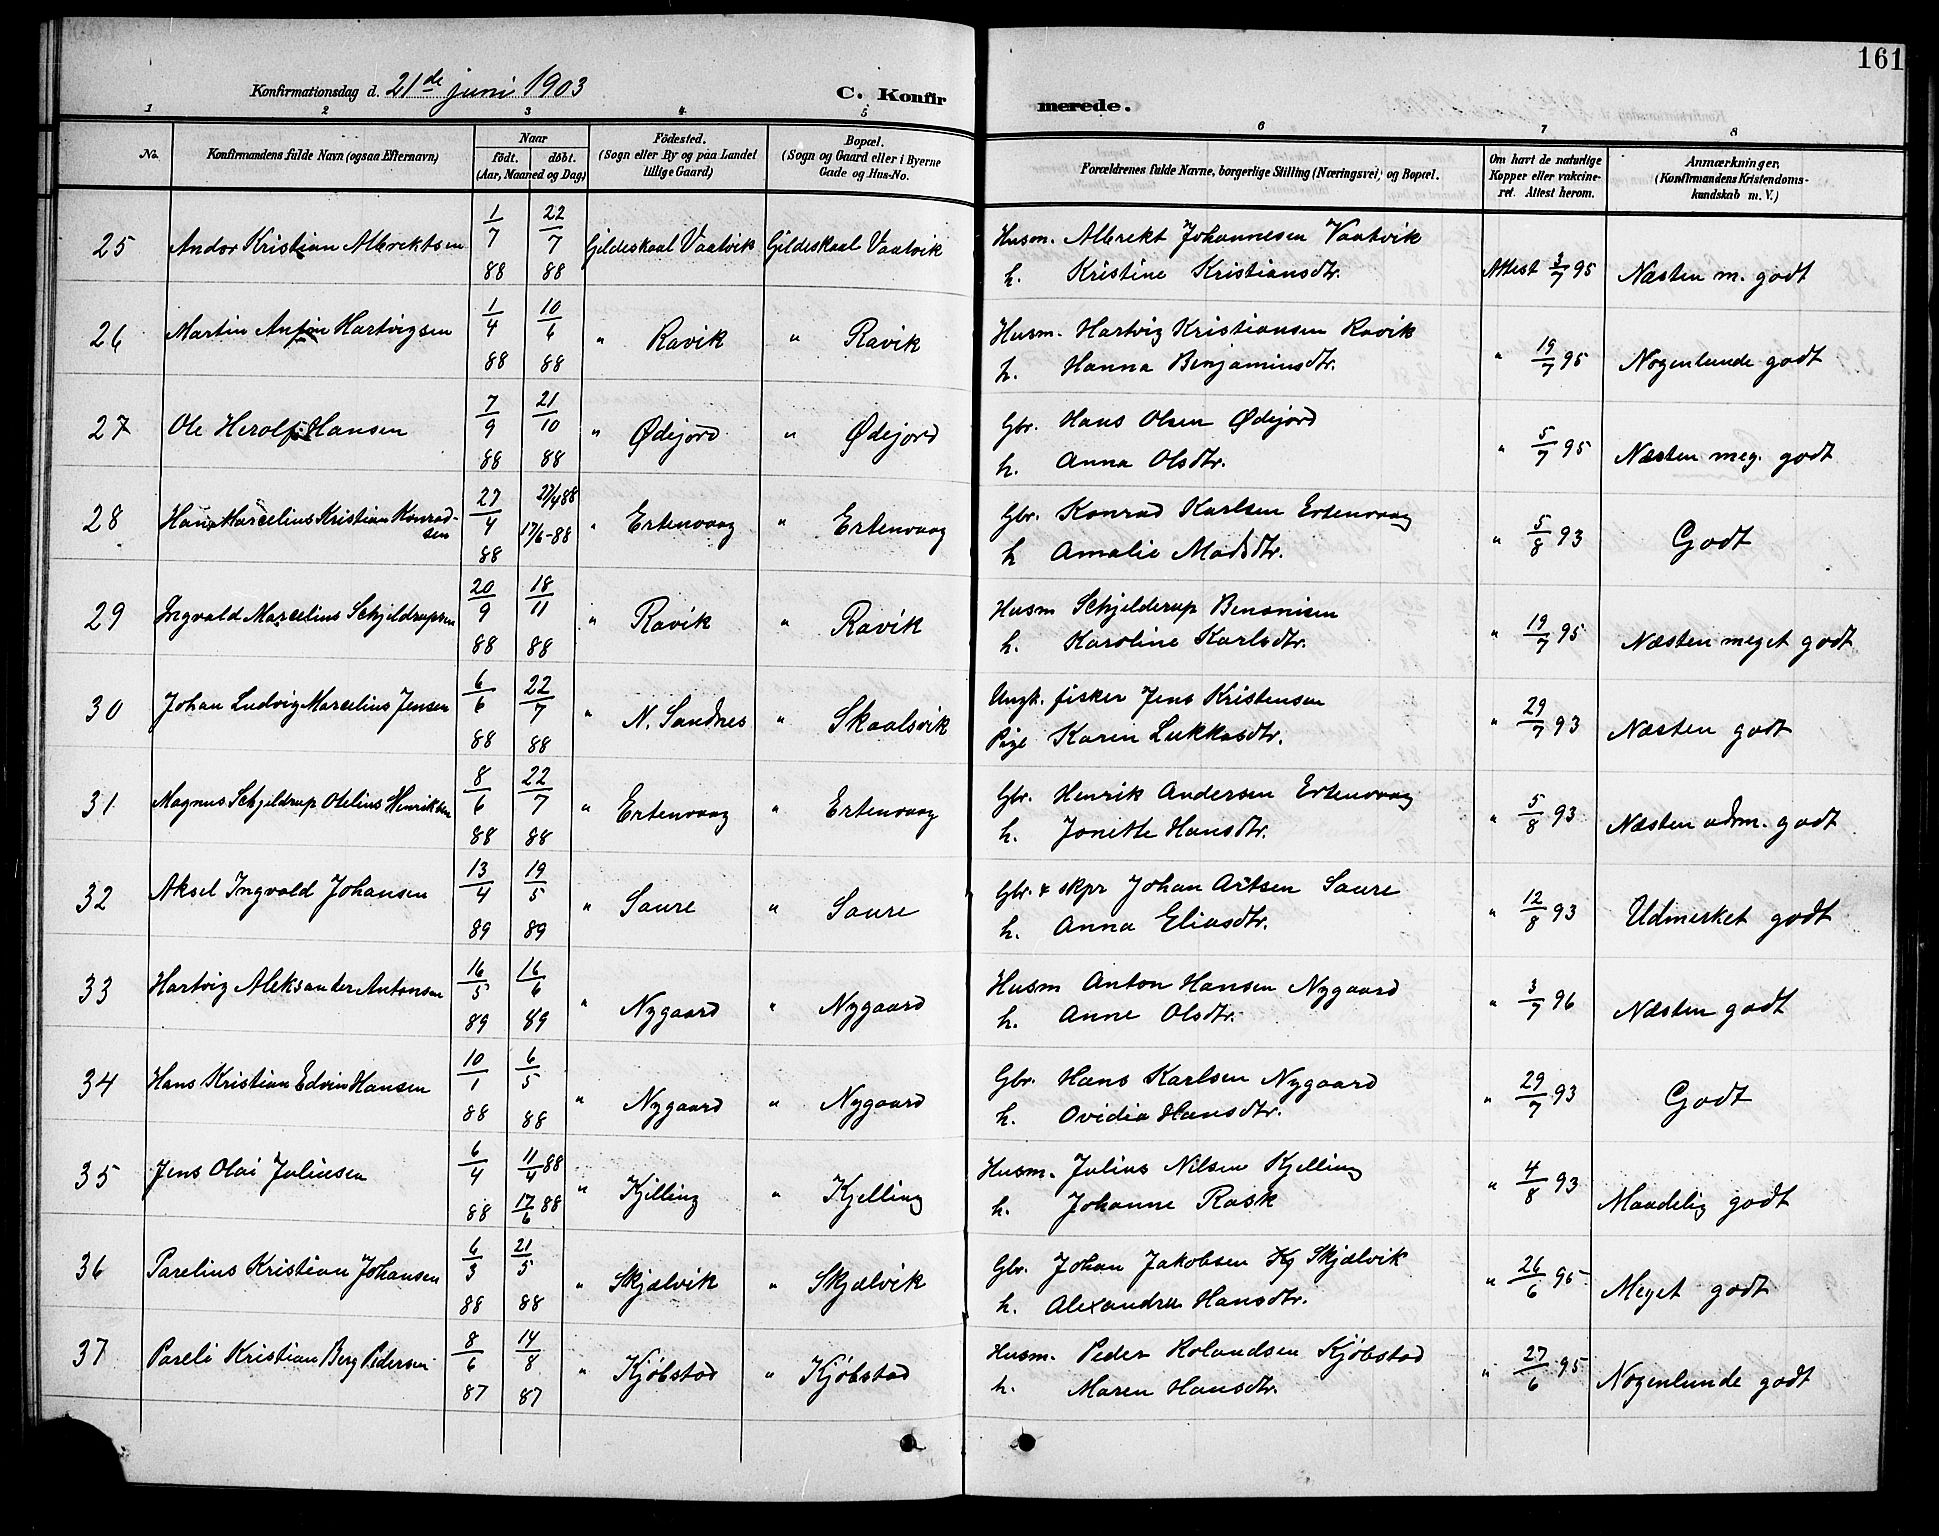 161
Konfirmationsdag d. 21de juni 1903
C. Konfirmerede.
1 2 3 4 5 6 7 8
No.
Konfirmandens fulde Navn (ogsaa Efternavn)
Naar
født. døbt.
(Aar, Maaned og Dag)
Fødested.
(Sogn eller By og paa Landet
tillige Gaard)
Bopæl.
(Sogn og Gaard eller i Byerne
Gade og Hus-No.
Forældrenes fulde Navne, borgerlige Stilling (Næringsvei) og Bopæl.
Om havt de naturlige
Kopper eller vakcine-
ret. Attest herom.
Anmærkninger.
(Konfirmandens Kristendoms-
kundskab m. V.)
25 Andor Kristian Albrektsen 1/7 88 22/7 88 Gildeskaal Vaatvik Gildeskaal Vaatvik Husm. Albrekt Johannesen Vaatvik
h. Kristine Kristiansdtr. Attest 3/7 95 Næsten m. godt
26 Martin Anton Hartvigsen 1/4 88 10/6 88 " Ravik " Ravik Husm. Hartvig Kristiansen Ravik
h. Hanna Benjaminsdtr. " 19/7 95 Nogenlunde godt
27 Ole Herolf Hansen 7/9 88 21/10 88 " Ødejord " Ødejord Gbr. Hans Olsen Ødejord
h. Anna Olsdtr. " 5/7 95 Næsten meg. godt
28 Hans Marcelius Kristian Konrad-
sen 27/4 88 27/4 88 17/6-88 " Ertenvaag " Ertenvaag Gbr. Konrad Karlsen Ertenvaag
h Amalie Madsdtr. " 5/8 93 Godt
29 Ingvald Marcelius Schjeldrupsen 20/9 88 18/11 88 " Ravik " Ravik Husm Schjelderup Benonisen
h. Karoline Karlsdtr. " 19/7 95 Næsten meget godt
30 Johan Ludvig Marcelius Jensen 6/6 88 22/7 88 " N. Sandnes " Skaalsvik Ungk. fisker Jens Kristensen
Pige Karen Lukkasdtr. " 29/7 93 Næsten godt
31 Magnus Schjeldrup Otelius Henriksen 8/6 88 22/7 88 " Ertenvaag " Ertenvaag Gbr. Henrik Andersen Ertenvaag
h. Jonette Hansdtr. " 5/8 93 Næsten udm. godt
32 Aksel Ingvald Johansen 13/4 89 19/5 89 " Saure " Saure Gbr. & skpr Johan Artsen Saure
h. Anna Eliasdtr. " 12/8 93 Udmerket godt
33 Hartvig Aleksander Antonsen 16/5 89 16/6 89 " Nygaard " Nygaard Husm Anton Hansen Nygaard
h. Anne Olsdtr. " 3/7 96 Næsten godt
34 Hans Kristian Edvin Hansen 10/1 88 6/5 88 " Nygaard " Nygaard Gbr. Hans Karlsen Nygaard
h. Ovidia Hansdtr. " 29/7 93 Godt
35 Jens Olai Juliusen 6/4 88 11/4 88 17/6 88 " Kjelling " Kjelling Husm. Julius Nilsen Kjelling
h. Johanne Rask " 4/8 93 Maadelig godt
36 Parelius Kristian Johansen 6/3 88 21/5 88 " Skjælvik " Skjælvik Gbr. Johan Jakobsen Skjælvik
h. Alexandra Hansdtr. " 26/6 95 Meget godt
37 Pareli Kristian Berg Pedersen 8/6 87 14/8 87 " Kjøbstad " Kjøbstad Husm. Peder Rolandsen Kjøbstad
h. Maren Hansdtr. " 27/6 95 Nogenlunde godt